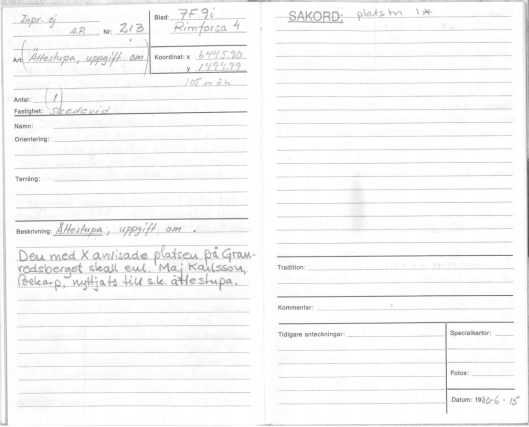 Inpr. ej
A.P. Nr: 213
Blad: 7F 9i
Rimforsa 4
Art: (Ättestupa, uppgift om)
Koordinat: x 6445.90
y 1494.99
105 m ö h
Antal: (1)
Fastighet: Svedevid
Namn:
Orientering:
Terräng:
Beskrivning: Ättestupa, uppgift om.
Den med X anvisade platsen på Gran-
redsberget skall enl. Maj Karlsson,
nyttjats till s.k. ättestupa.
SAKORD: platstn 1*
Tradition:
Kommentar:
Tidigare anteckningar:
Specialkartor:
Fotos:
Datum: 1980-6-15